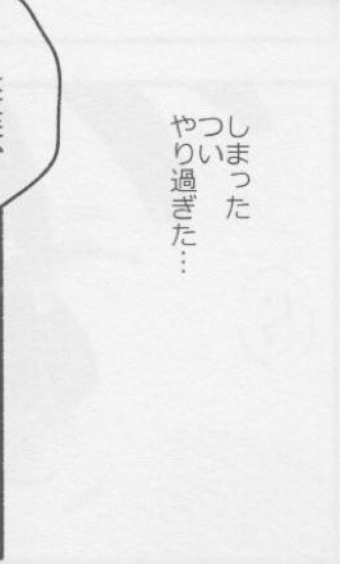 しまった
つい
やり過ぎた…